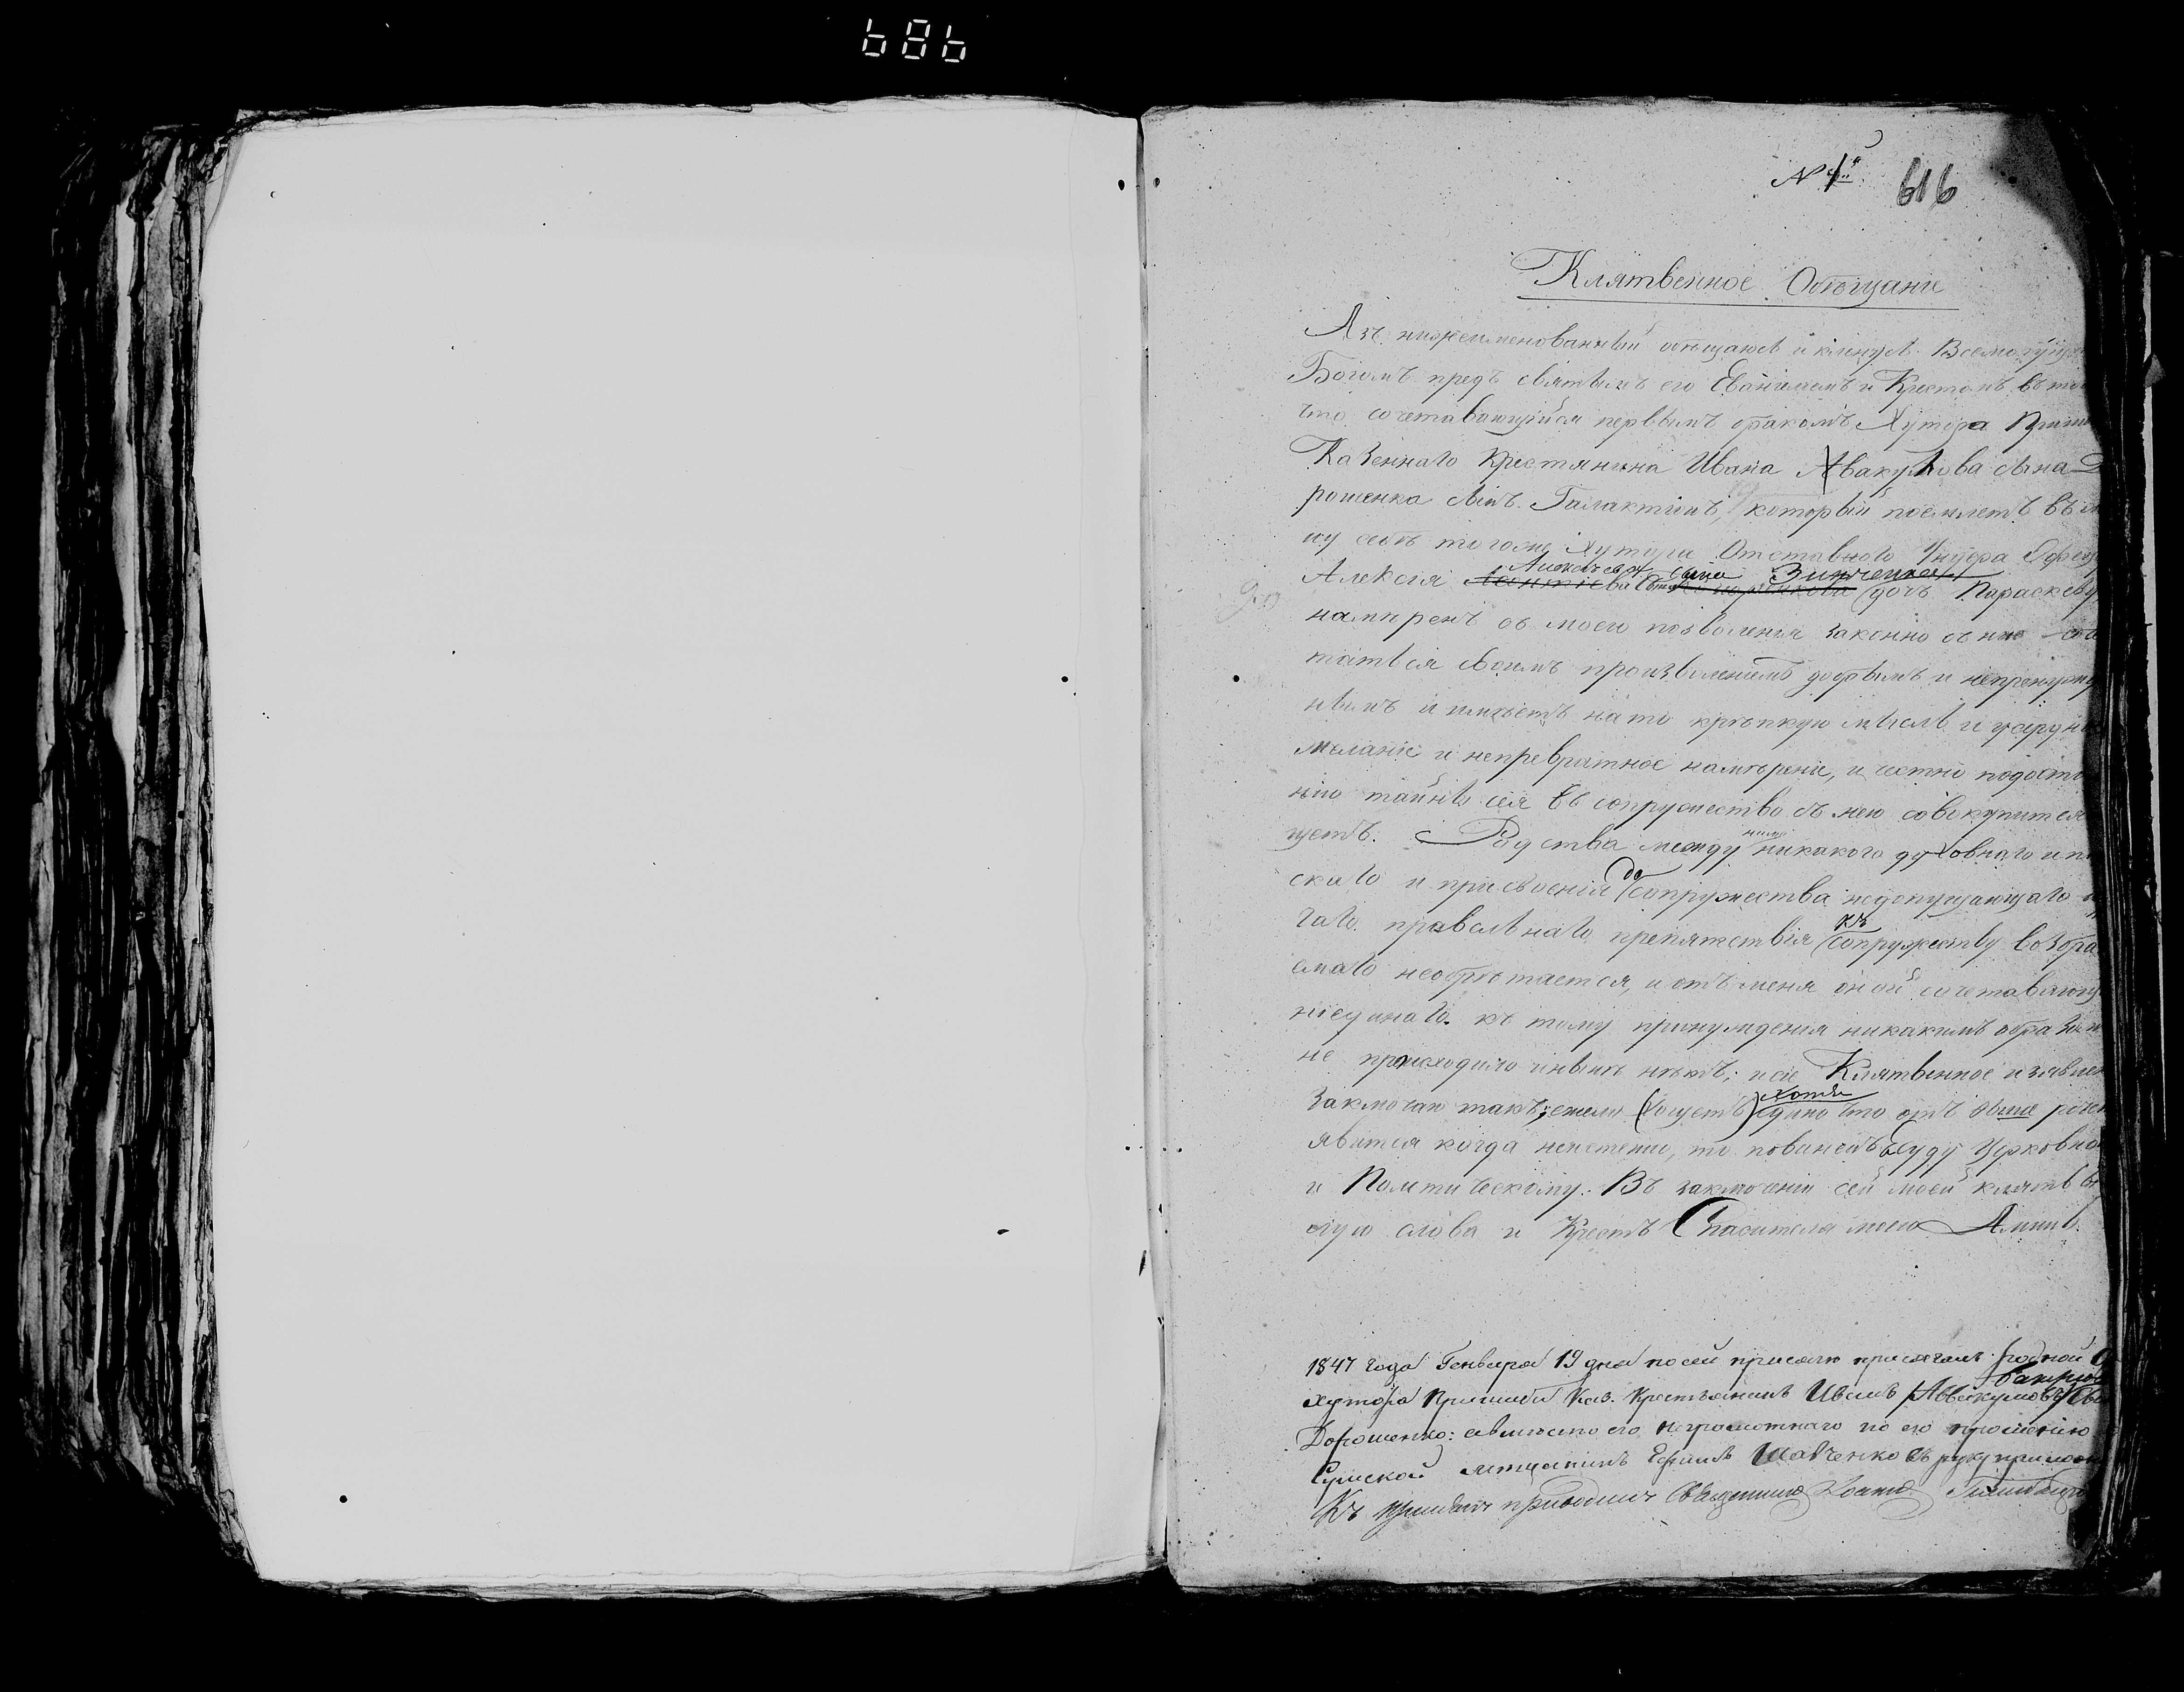 686
N 1й 616
Клятвенное Обѣщание
Азъ нижеименованный обѣщаюсь и клянусь Всемогущи
Богомъ предъ святымъ его Евангилемъ и Крестомъ въ то
что сочетавающійся первымъ бракомъ, Хутора
Казеннаго Крестянина Ивана Авакумова сына
рошенка сынъ Галактіонъ, который поемлетъ въ
ну себѣ тогоже Хутора Отставного Унтера Офец
Алексія сына Зинченка дочь Параскеву
намѣренъ съ моего позволения законно съ нею соч
татся своимъ произволениемъ добрымъ и непренужд
нымъ и имѣетъ на то крѣпкую мысль и усердн
желаніе и непревратное намѣреніе, и честно подосто
нію тайны сея въ сопружество съ нею совокупится
щетъ. Родства между ними никакого духовнаго и п
скаго и присвоенія до сопружества недопущающаго
гаго правельнаго препятствія къ сопружеству возбра
емаго необрѣтается, и отъ меня оной сочетавающ
ніединаго къ тому принуждения никакимъ образом
не происходило и нынѣ нѣтъ; и сіе Клятвенное изявлен
Заключаю такъ; ежели хотя едино что отъ выше рече
явится когда неистенно, то повиненъ Суду Церковно
и Политическому. Въ заключении сей моей клятвы
лую слова и Крестъ Спасителя моего Аминь.
1847 года Генваря 19 дня по сей присягѣ присягалъ родной
хутора Каз. Крестьянинъ Иванъ Аввакумовъ
Дорошенко: а вмѣсто его неграмотнаго по его прошенію
Сумской мещанинъ Ефимъ Шавченко руку прилож
Къ приводилъ Священникъ